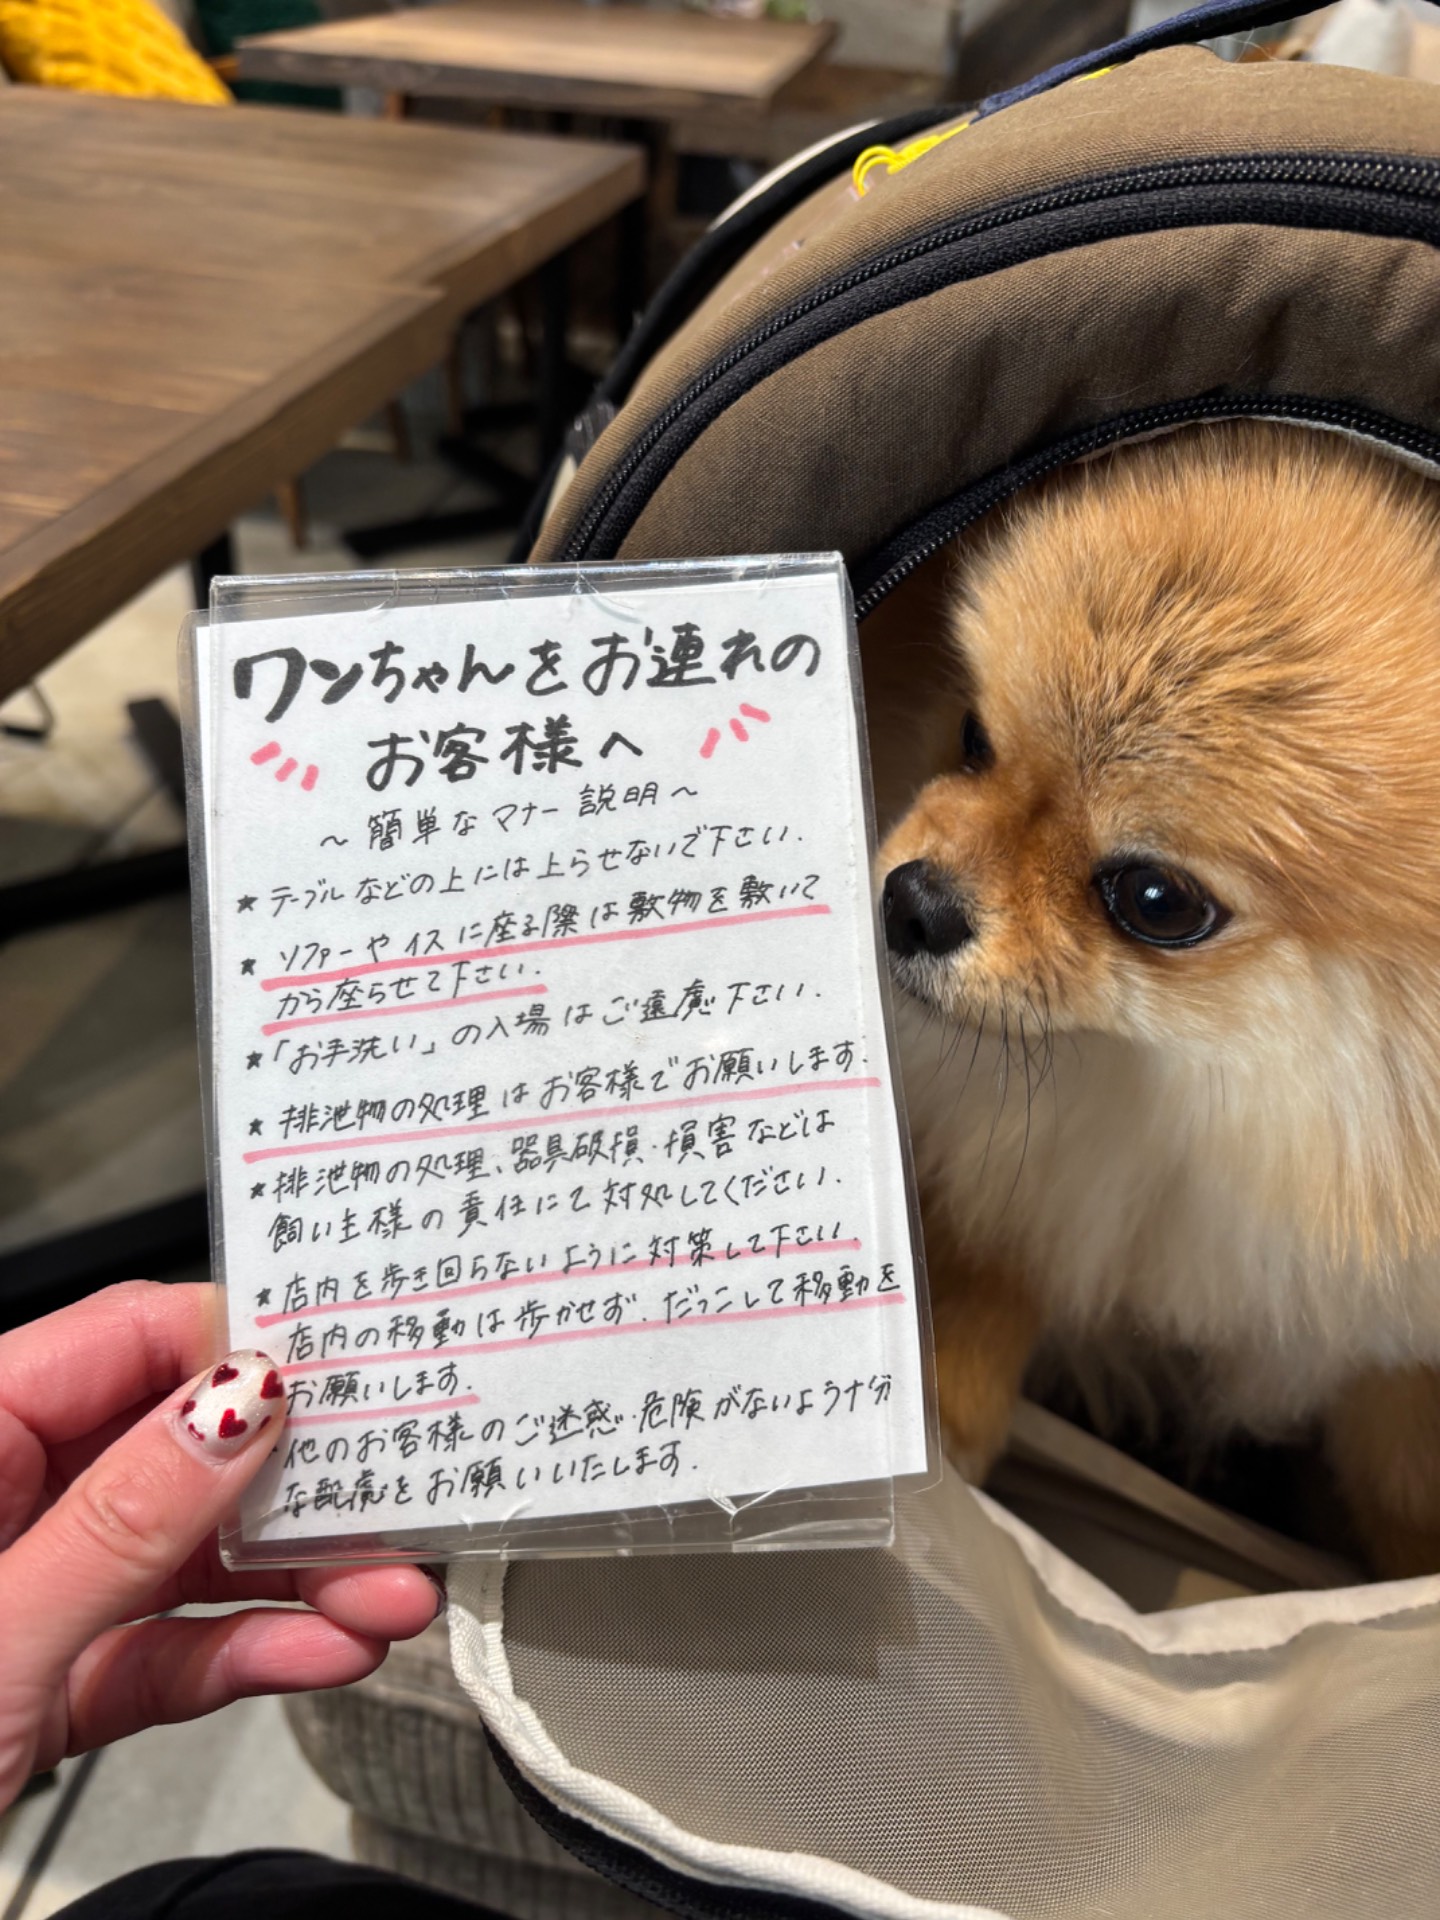 ワンちゃんをお連れの
お客様へ
～簡単なマナー説明～
★テーブルなどの上には上らせないで下さい.
★ソファーやイスに座る際は敷物を敷いて
から座らせて下さい.
★「お手洗い」の入場はご遠慮下さい.
★排泄物の処理はお客様でお願いします.
★排泄物の処理、器具破損・損害などは
飼い主様の責任にて対処してください.
★店内を歩き回らないように対策して下さい.
店内の移動は歩かせず.だっこして移動を
お願いします.
他のお客様のご迷惑・危険がないよう十分
な配慮をお願いいたします.